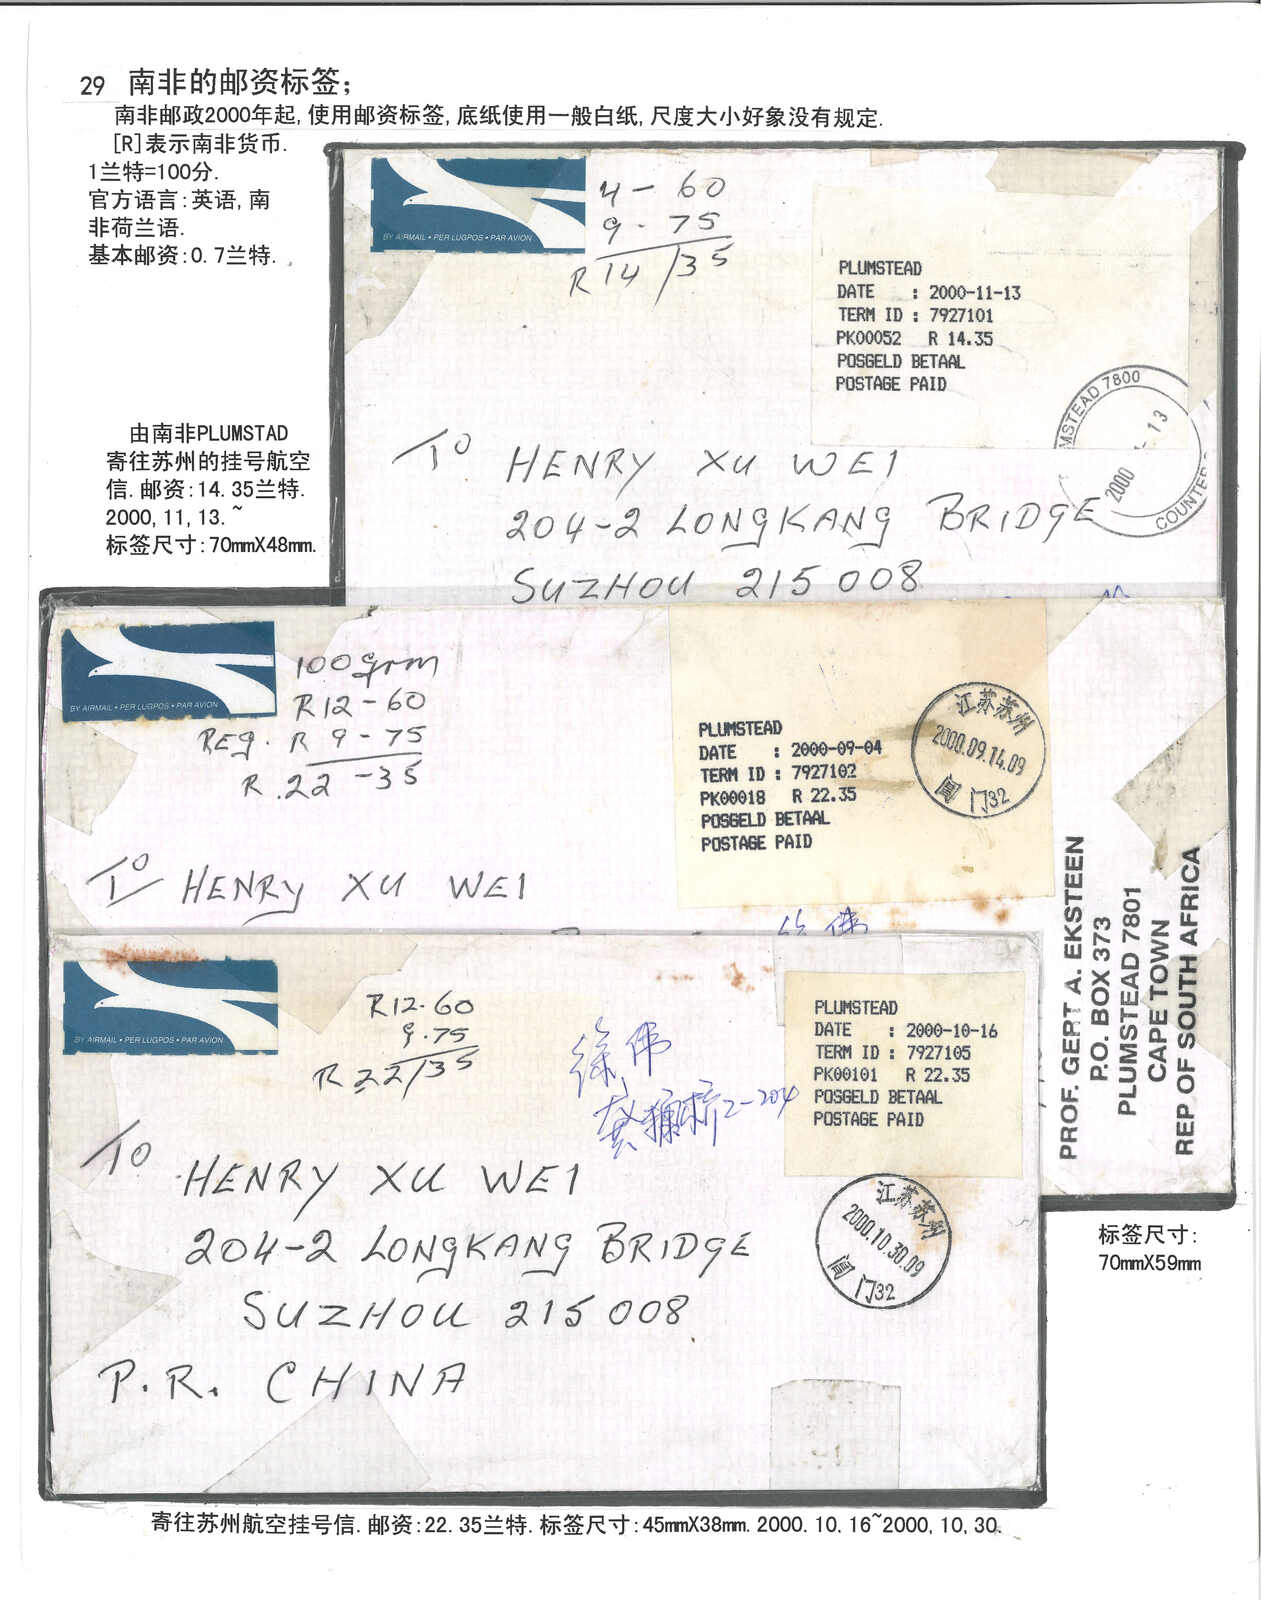 29 南非的邮资标签；
南非邮政2000年起,使用邮资标签,底纸使用一般白纸,尺度大小好象没有规定.
[R]表示南非货币.
1兰特=100分.
官方语言:英语,南
非荷兰语.
基本邮资:0.7兰特.
BY AIRMAIL • PER LUGPOS • PAR AVION
4 - 60
9 - 75
R 14/35
PLUMSTEAD
DATE : 2000-11-13
TERM ID : 7927101
PK00052 R 14.35
POSGELD BETAAL
POSTAGE PAID
MSTEAD 7800
2000 - 13
COUNTER
由南非PLUMSTAD
寄往苏州的挂号航空
信.邮资:14.35兰特.
2000,11,13.~
标签尺寸:70mmX48mm.
TO HENRY XU WEI
204-2 LONGKANG BRIDGE
SUZHOU 215008
BY AIRMAIL • PER LUGPOS • PAR AVION
100grm
R12-60
REG. R 9-75
R.22-35
PLUMSTEAD
DATE : 2000-09-04
TERM ID : 7927102
PK00018 R 22.35
POSGELD BETAAL
POSTAGE PAID
江苏苏州
2000.09.14.09
阊门32
TO HENRY XU WEI
徐伟
PROF. GERT A. EKSTEEN
P.O. BOX 373
PLUMSTEAD 7801
CAPE TOWN
REP OF SOUTH AFRICA
标签尺寸:
70mmX59mm
BY AIRMAIL • PER LUGPOS • PAR AVION
R12-60
9.75
R 22/35
徐伟
2-204
PLUMSTEAD
DATE : 2000-10-16
TERM ID : 7927105
PK00101 R 22.35
POSGELD BETAAL
POSTAGE PAID
江苏苏州
2000.10.30.09
阊门32
TO HENRY XU WEI
204-2 LONGKANG BRIDGE
SUZHOU 215008
P.R. CHINA
寄往苏州航空挂号信.邮资:22.35兰特.标签尺寸:45mmX38mm.2000.10.16~2000,10,30.